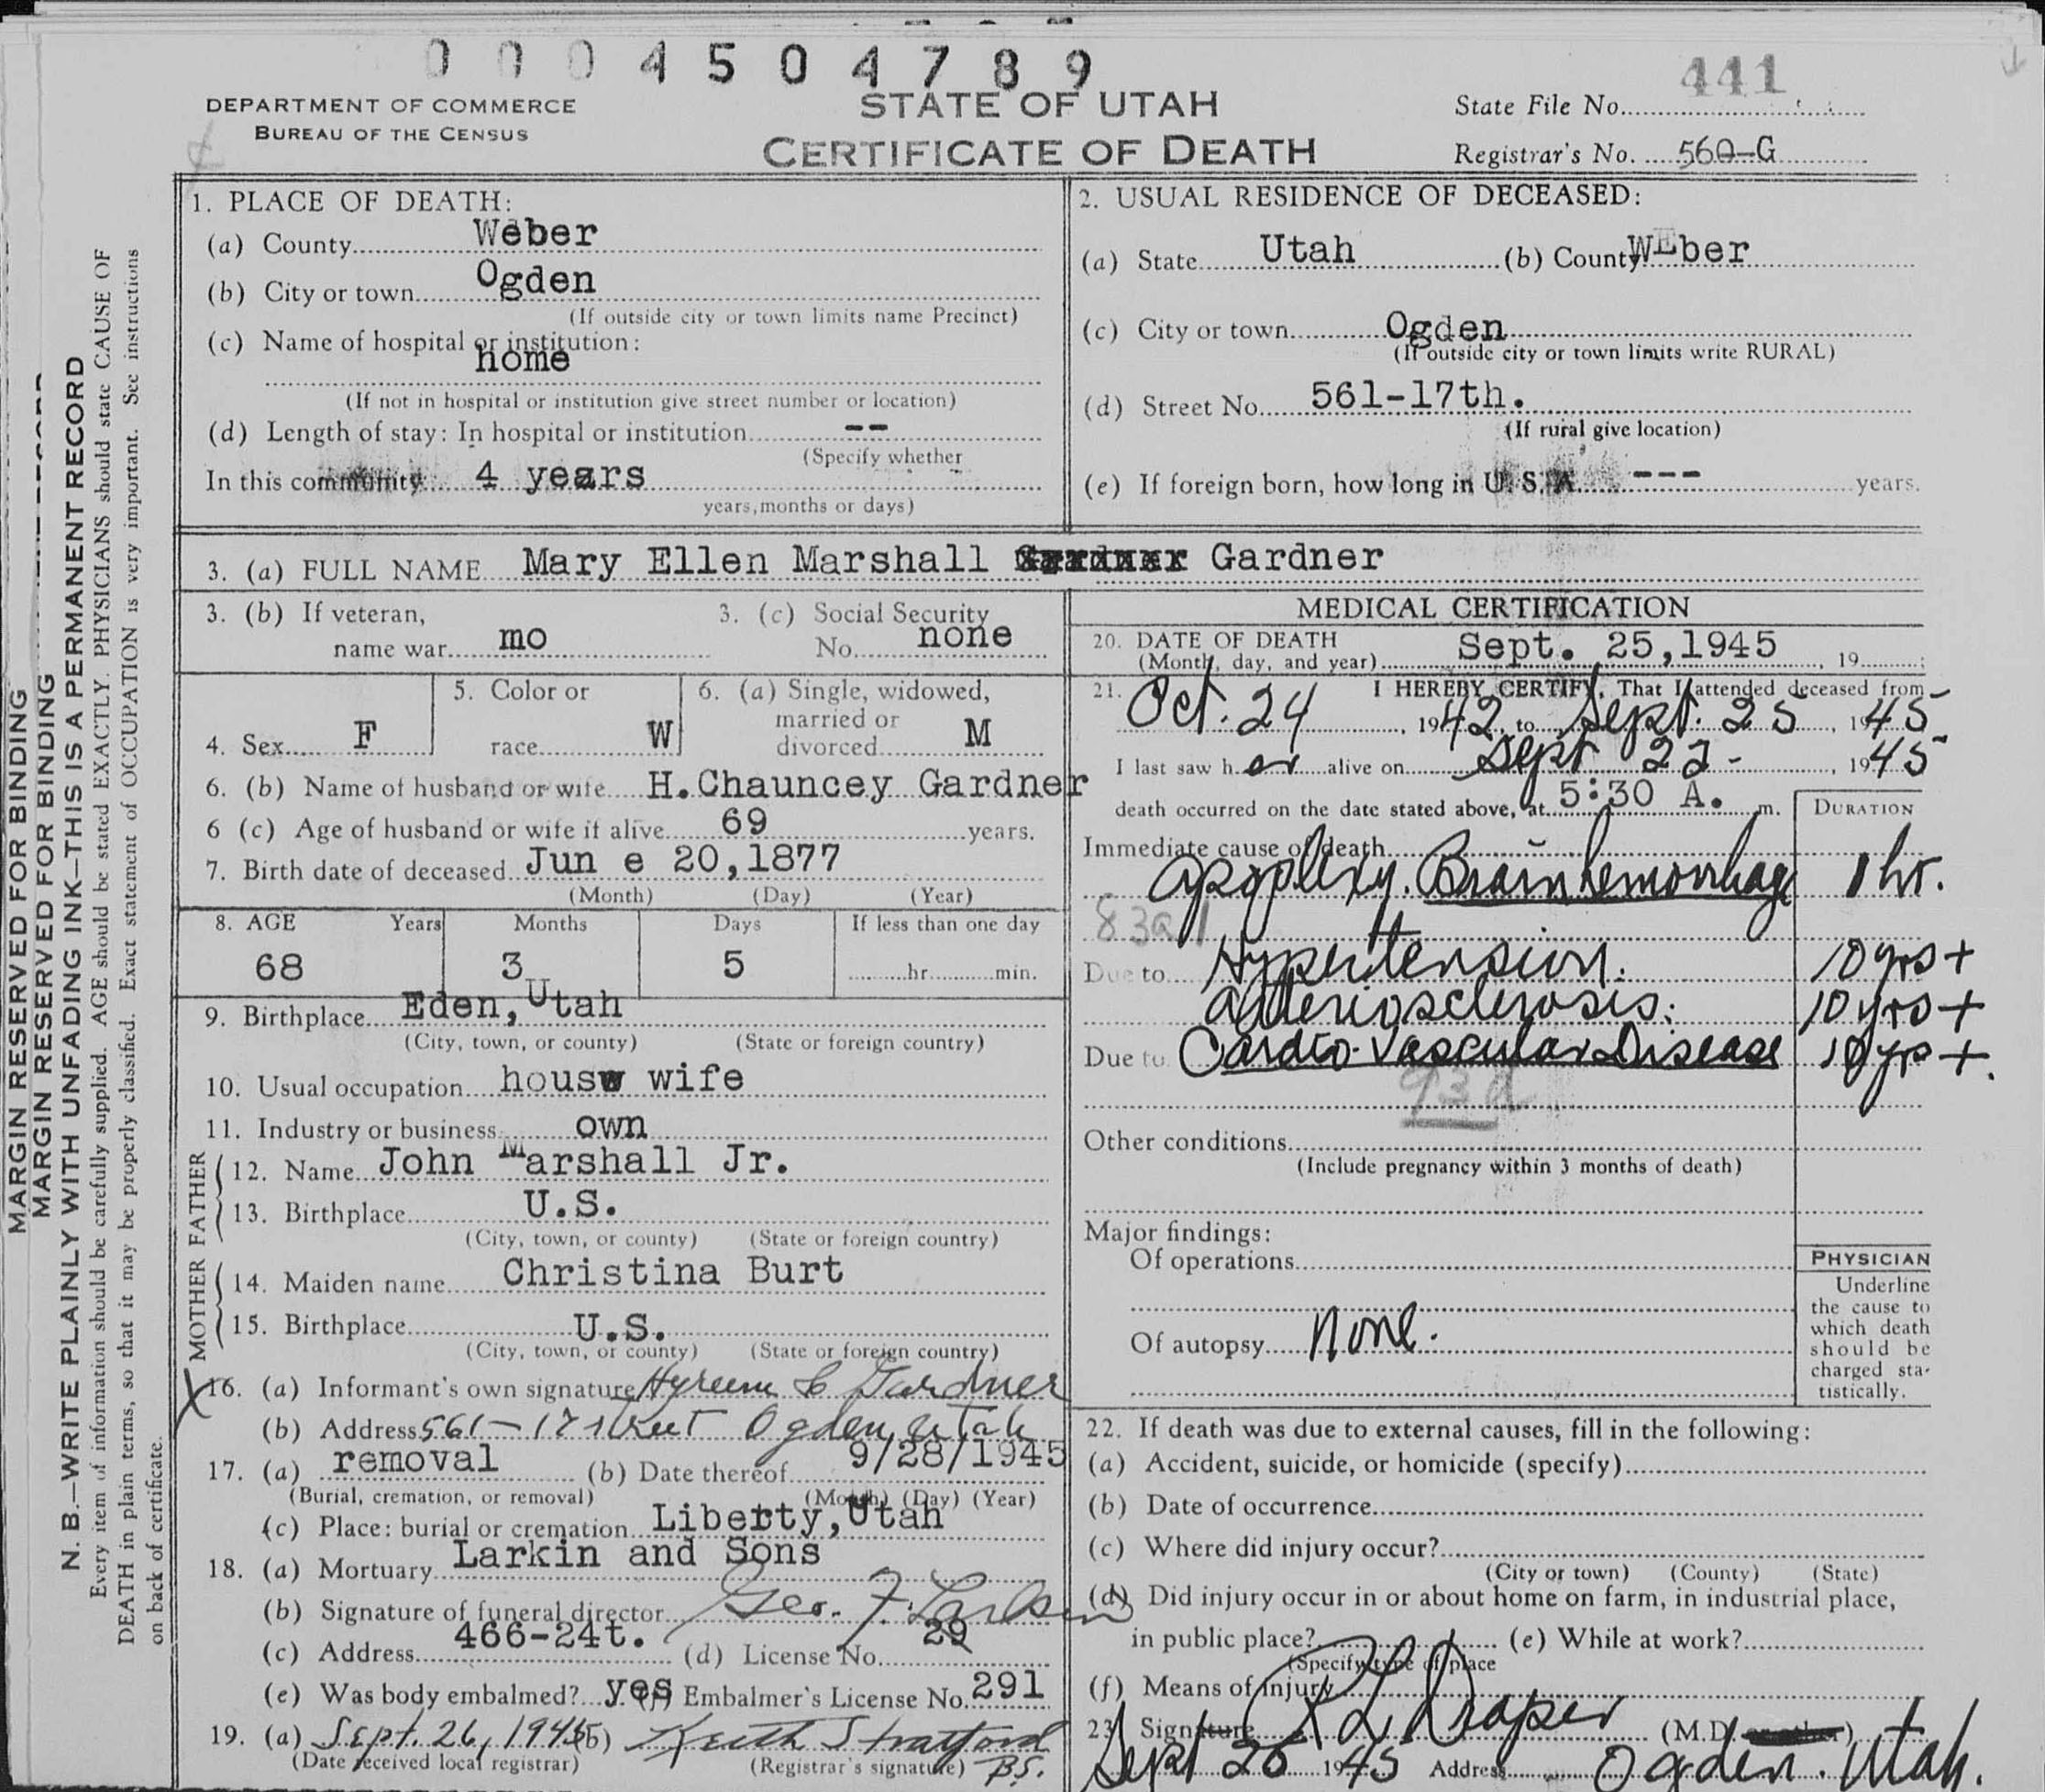 0004504789
DEPARTMENT OF COMMERCE
BUREAU OF THE CENSUS
STATE OF UTAH
CERTIFICATE OF DEATH
441
State File No.
Registrar's No. 560-G
MARGIN RESERVED FOR BINDING
MARGIN RESERVED FOR BINDING
N. B.—WRITE PLAINLY WITH UNFADING INK—THIS IS A PERMANENT RECORD
Every item of information should be carefully supplied. AGE should be stated EXACTLY. PHYSICIANS should state CAUSE OF
DEATH in plain terms, so that it may be properly classified. Exact statement of OCCUPATION is very important. See instructions
on back of certificate.
1. PLACE OF DEATH:
(a) County Weber
(b) City or town Ogden
(If outside city or town limits name Precinct)
(c) Name of hospital or institution:
home
(If not in hospital or institution give street number or location)
(d) Length of stay: In hospital or institution --
(Specify whether
In this community 4 years
years, months or days)
2. USUAL RESIDENCE OF DECEASED:
(a) State Utah (b) County WEber
(c) City or town Ogden
(If outside city or town limits write RURAL)
(d) Street No. 561-17th.
(If rural give location)
(e) If foreign born, how long in U. S. A. --- years.
3. (a) FULL NAME Mary Ellen Marshall Gardner
3. (b) If veteran,
name war mo
3. (c) Social Security
No. none
4. Sex F
5. Color or
race W
6. (a) Single, widowed,
married or
divorced M
6. (b) Name of husband or wife H.Chauncey Gardner
6 (c) Age of husband or wife if alive 69 years.
7. Birth date of deceased Jun e 20,1877
(Month) (Day) (Year)
8. AGE Years Months Days If less than one day
68 3 5 hr. min.
9. Birthplace Eden, Utah
(City, town, or county) (State or foreign country)
10. Usual occupation housw wife
11. Industry or business own
FATHER
12. Name John Marshall Jr.
13. Birthplace U.S.
(City, town, or county) (State or foreign country)
MOTHER
14. Maiden name Christina Burt
15. Birthplace U.S.
(City, town, or county) (State or foreign country)
X 16. (a) Informant's own signature Hyreem C Gardner
(b) Address 561-17 street Ogden, Utah
17. (a) removal (b) Date thereof 9/28/1945
(Burial, cremation, or removal) (Month) (Day) (Year)
(c) Place: burial or cremation Liberty, Utah
18. (a) Mortuary Larkin and Sons
(b) Signature of funeral director Geo. F. Larkin
(c) Address 466-24t. (d) License No. 29
(e) Was body embalmed? yes (f) Embalmer's License No. 291
19. (a) Sept. 26, 1945 (b) Keith Stratford
(Date received local registrar) (Registrar's signature) B.S.
MEDICAL CERTIFICATION
20. DATE OF DEATH
(Month, day, and year) Sept. 25,1945, 19 :
21. I HEREBY CERTIFY, That I attended deceased from
Oct. 24, 1942, to Sept. 25, 1945
I last saw her alive on Sept 23 -, 1945
death occurred on the date stated above, at 5:30 A. m.
DURATION
Immediate cause of death
Apoplexy. Brain hemorrhage 1 hr.
83a1
Due to Hypertension. 10 yrs +
Arteriosclerosis. 10 yrs +
Due to Cardio-Vascular Disease 10 yrs +.
93d
Other conditions
(Include pregnancy within 3 months of death)
Major findings:
Of operations
Of autopsy None.
PHYSICIAN
Underline
the cause to
which death
should be
charged sta-
tistically.
22. If death was due to external causes, fill in the following:
(a) Accident, suicide, or homicide (specify)
(b) Date of occurrence
(c) Where did injury occur?
(City or town) (County) (State)
(d) Did injury occur in or about home on farm, in industrial place,
in public place? (e) While at work?
(Specify type of place
(f) Means of injury
23. Signature R L Draper (M.D. or other)
Sept 26 1945 Address Ogden. Utah.